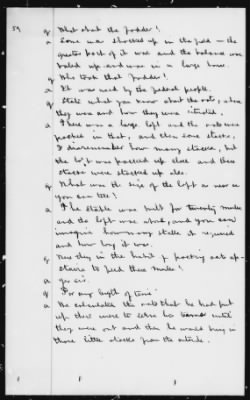 59 Q What about the fodder?
A Some was shocked up in the field — the
greater part of it was and the balance was
baled up and was in a large house.
Q Who took that fodder?
A It was used by the federal people.
Q State what you know about the oats, where
they was and how they were situated.
A There was a large loft and the oats was
packed in that, and then some stacks,
I disremember how many stacks, but
the loft was packed up close and these
stacks were stacked up also.
Q What was the size of the loft as near as
you can tell?
A The stable was built for twenty mules
and the loft was above, and you can
imagine how many stalls it required
and how long it was.
Q Were they in the habit of packing oats up
stairs to feed these mules?
A Yes sir.
Q For any length of time?
A He calculated the oats that he had put
up there were to serve his until
they were out and then he would bring in
those little stacks from the outside.